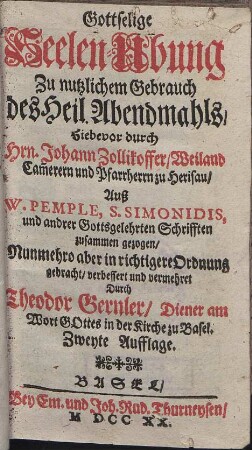 Gottselige
Seelen-Übung
Zu nutzlichem Gebrauch
des Heil. Abendmahls/
Hiebevor durch
Hrn. Johann Zollikoffer/ Weiland
Camerern und Pfarrherrn zu Herisau/
Auß
W. PEMPLE, S. SIMONIDIS,
und andrer Gottsgelehrten Schrifften
zusammen gezogen/
Nunmehro aber in richtigere Ordnung
gebracht/ verbessert und vermehret
Durch
Theodor Gernler/ Diener am
Wort GOttes in der Kirche zu Basel.
Zweyte Aufflage.
BASEL/
Bey Em. und Joh. Rud. Thurneysen/
M DCC XX.